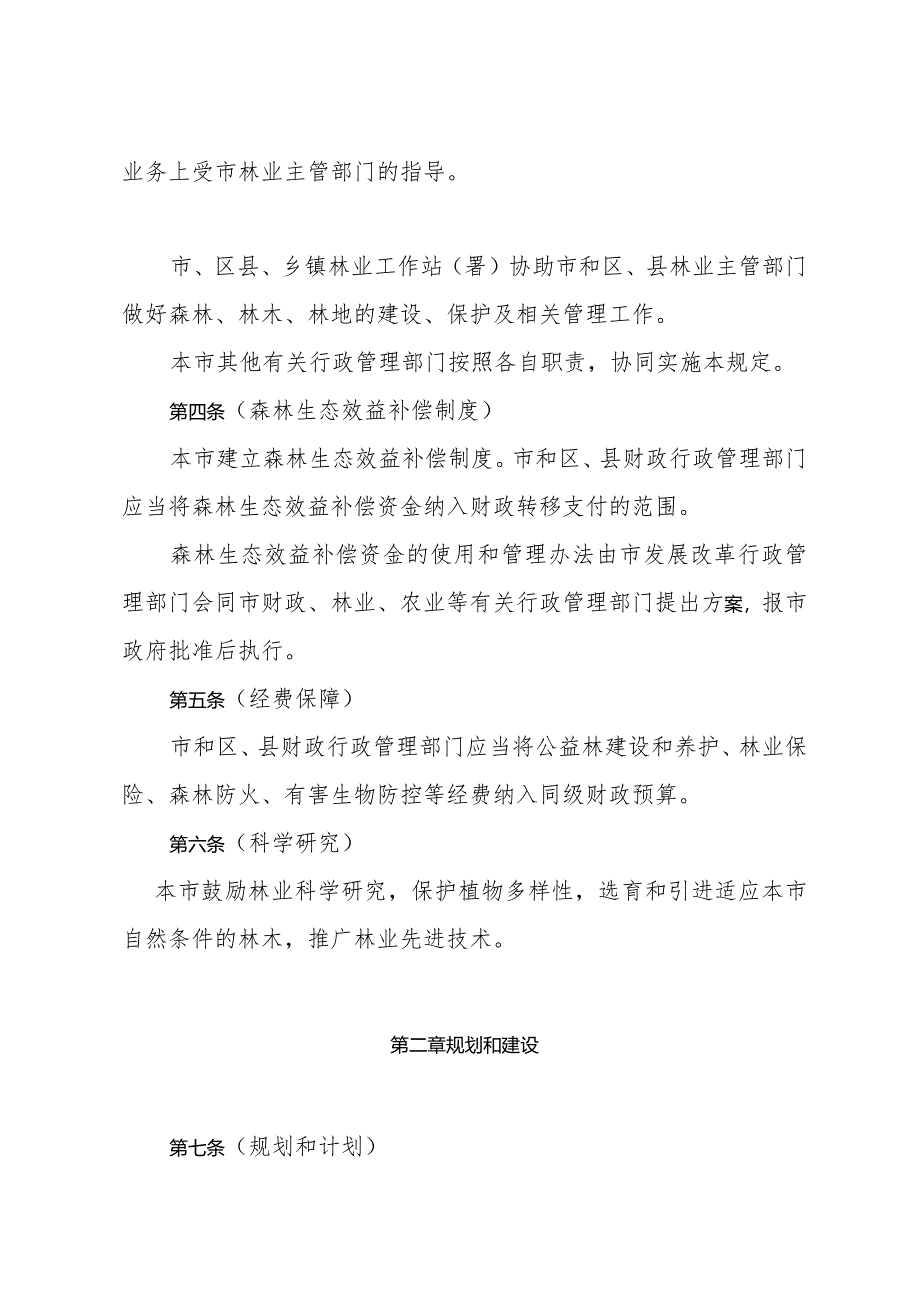 业务上受市林业主管部门的指导。
市、区县、乡镇林业工作站（署）协助市和区、县林业主管部门
做好森林、林木、林地的建设、保护及相关管理工作。
本市其他有关行政管理部门按照各自职责，协同实施本规定。
第四条（森林生态效益补偿制度）
本市建立森林生态效益补偿制度。市和区、县财政行政管理部门
应当将森林生态效益补偿资金纳入财政转移支付的范围。
森林生态效益补偿资金的使用和管理办法由市发展改革行政管
理部门会同市财政、林业、农业等有关行政管理部门提出方案，报市
政府批准后执行。
第五条（经费保障）
市和区、县财政行政管理部门应当将公益林建设和养护、林业保
险、森林防火、有害生物防控等经费纳入同级财政预算。
第六条（科学研究）
本市鼓励林业科学研究，保护植物多样性，选育和引进适应本市
自然条件的林木，推广林业先进技术。
第二章规划和建设
第七条（规划和计划）